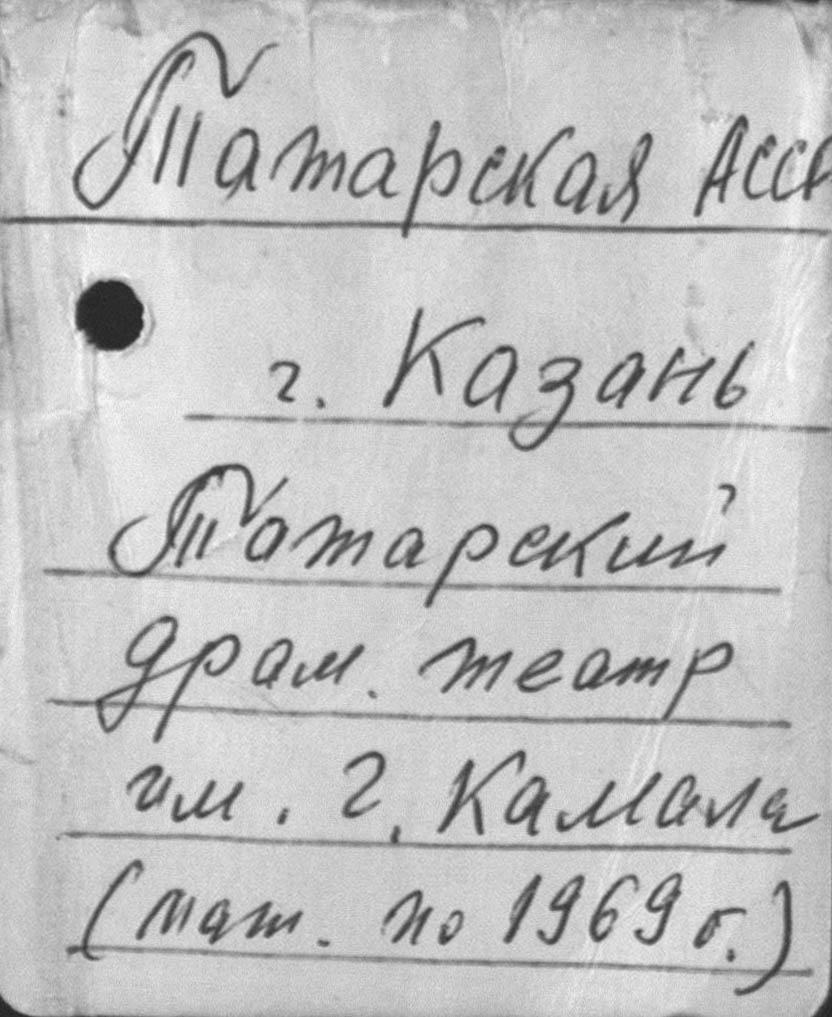 Татарская АССР
г. Казань
Татарский
драм. театр
им. Г. Камала
(мат. по 1969 г.)